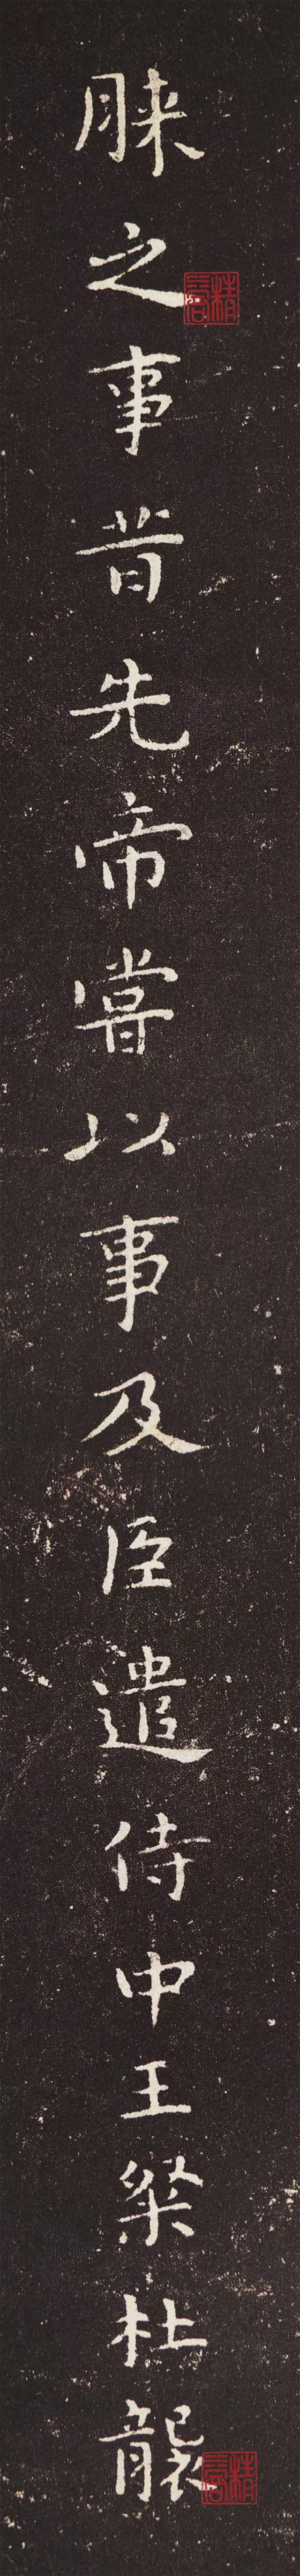 脒之事昔先帝嘗以事及臣遣侍中王粲杜襲